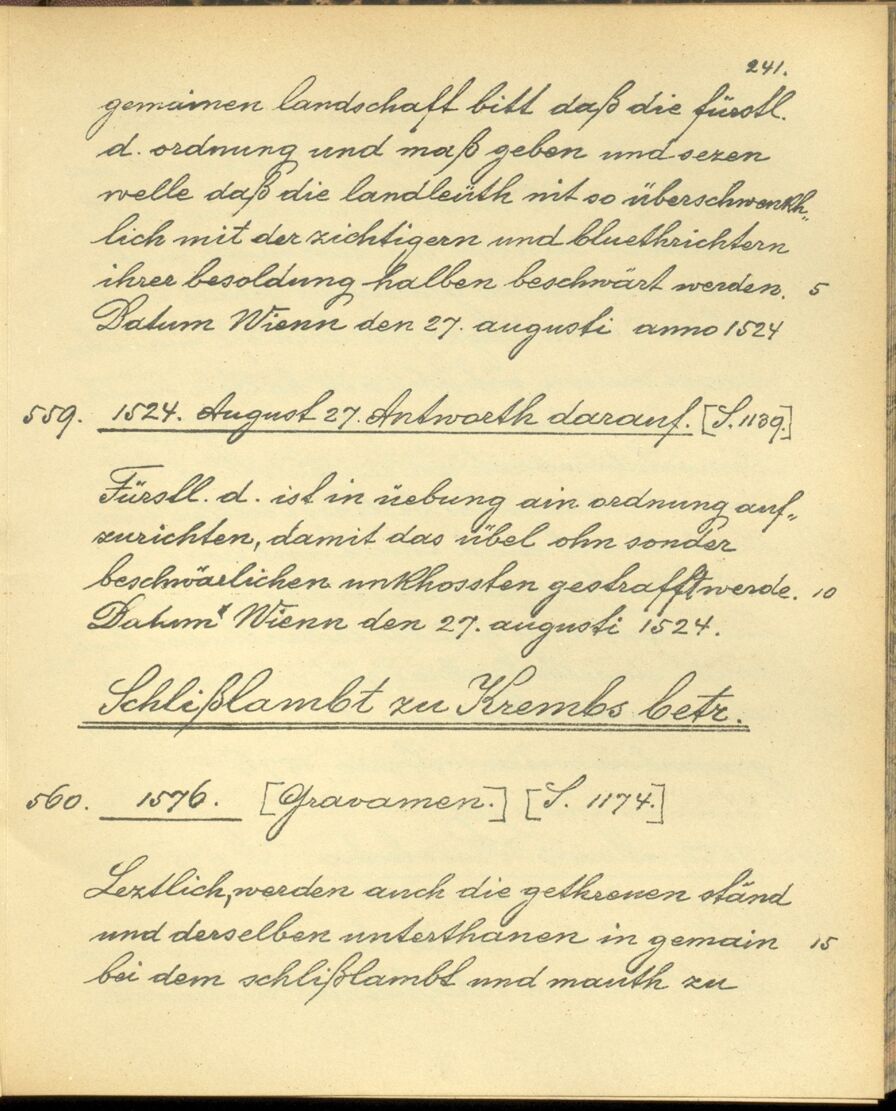 241.
gemainen landschaft bitt daß die fürstl.
d. ordnung und maß geben und sezen
welle daß die landleüth nit so überschwenkh„
lich mit der zichtigern und bluethrichtern
ihrer besoldung halben beschwärt werden. 5
Datum Wienn den 27. augusti anno 1524
559. 1524. August 27. Antworth darauf. [S. 1139.]
Fürstl. d. ist in üebung ain ordnung auf„
zurichten, damit das übel ohn sonder
beschwärlichen unkhossten gestrafft werde. 10
Datum Wienn den 27. augusti 1524.
Schlißlambt zu Krembs betr.
560. 1576. [Gravamen.] [S. 1174.]
Leztlich, werden auch die gethreuen ständ
und derselben unterthanen in gemain 15
bei dem schlißlambt und mauth zu